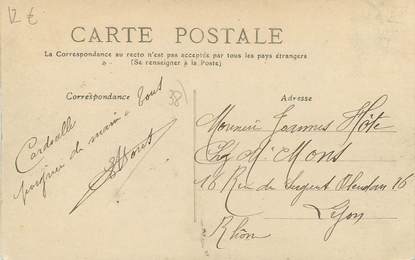 12 €
CARTE POSTALE
La Correspondance au recto n'est pas acceptée par tous les pays étrangers
(Se renseigner à la Poste)
Correspondance
38
Adresse
Cordialle
poignée de main à tous
Monsieur Joannes Hôte
Chez Mr Mons
16 Rue du Sergent Blandan 16
Lyon
Rhône